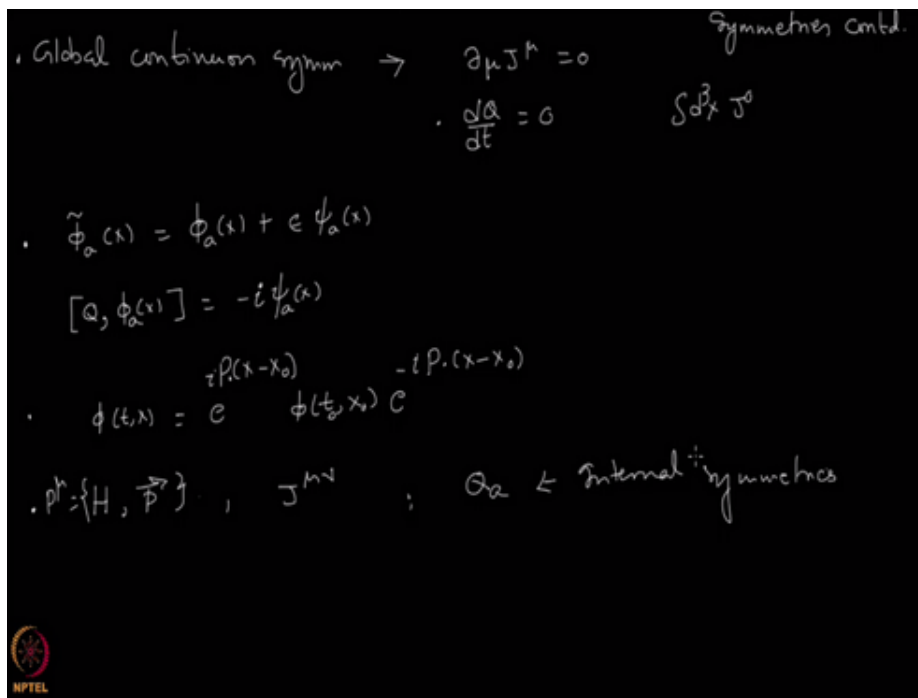 Symmetries contd.
. Global continuon symm → ∂μ J^μ = 0
. dQ/dt = 0    ∫d³x J⁰
. φ̃_a(x) = φ_a(x) + ϵ ψ_a(x)
[Q, φ_a(x)] = -i ψ_a(x)
. φ(t,x) = e^{iP.(x-x₀)} φ(t₀,x₀) e^{-iP.(x-x₀)}
. P^μ = {H, P⃗} , J^{μν} ; Q_a ← Internal symmetries
NPTEL